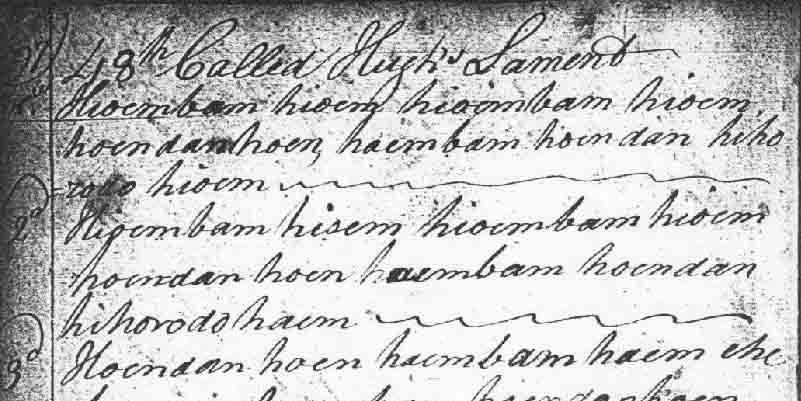 48th Called Hugh's Lament
Hioembam hioem hioembam hioem,
hoendanhoen, haembam hoendan hiho
rodo hioem
2d Hioembam hioem hioembam hioem
hoendan hoen haembam hoendan
hihorodo haem
3d Hoendan hoen haembam haem che
hoendanhoen